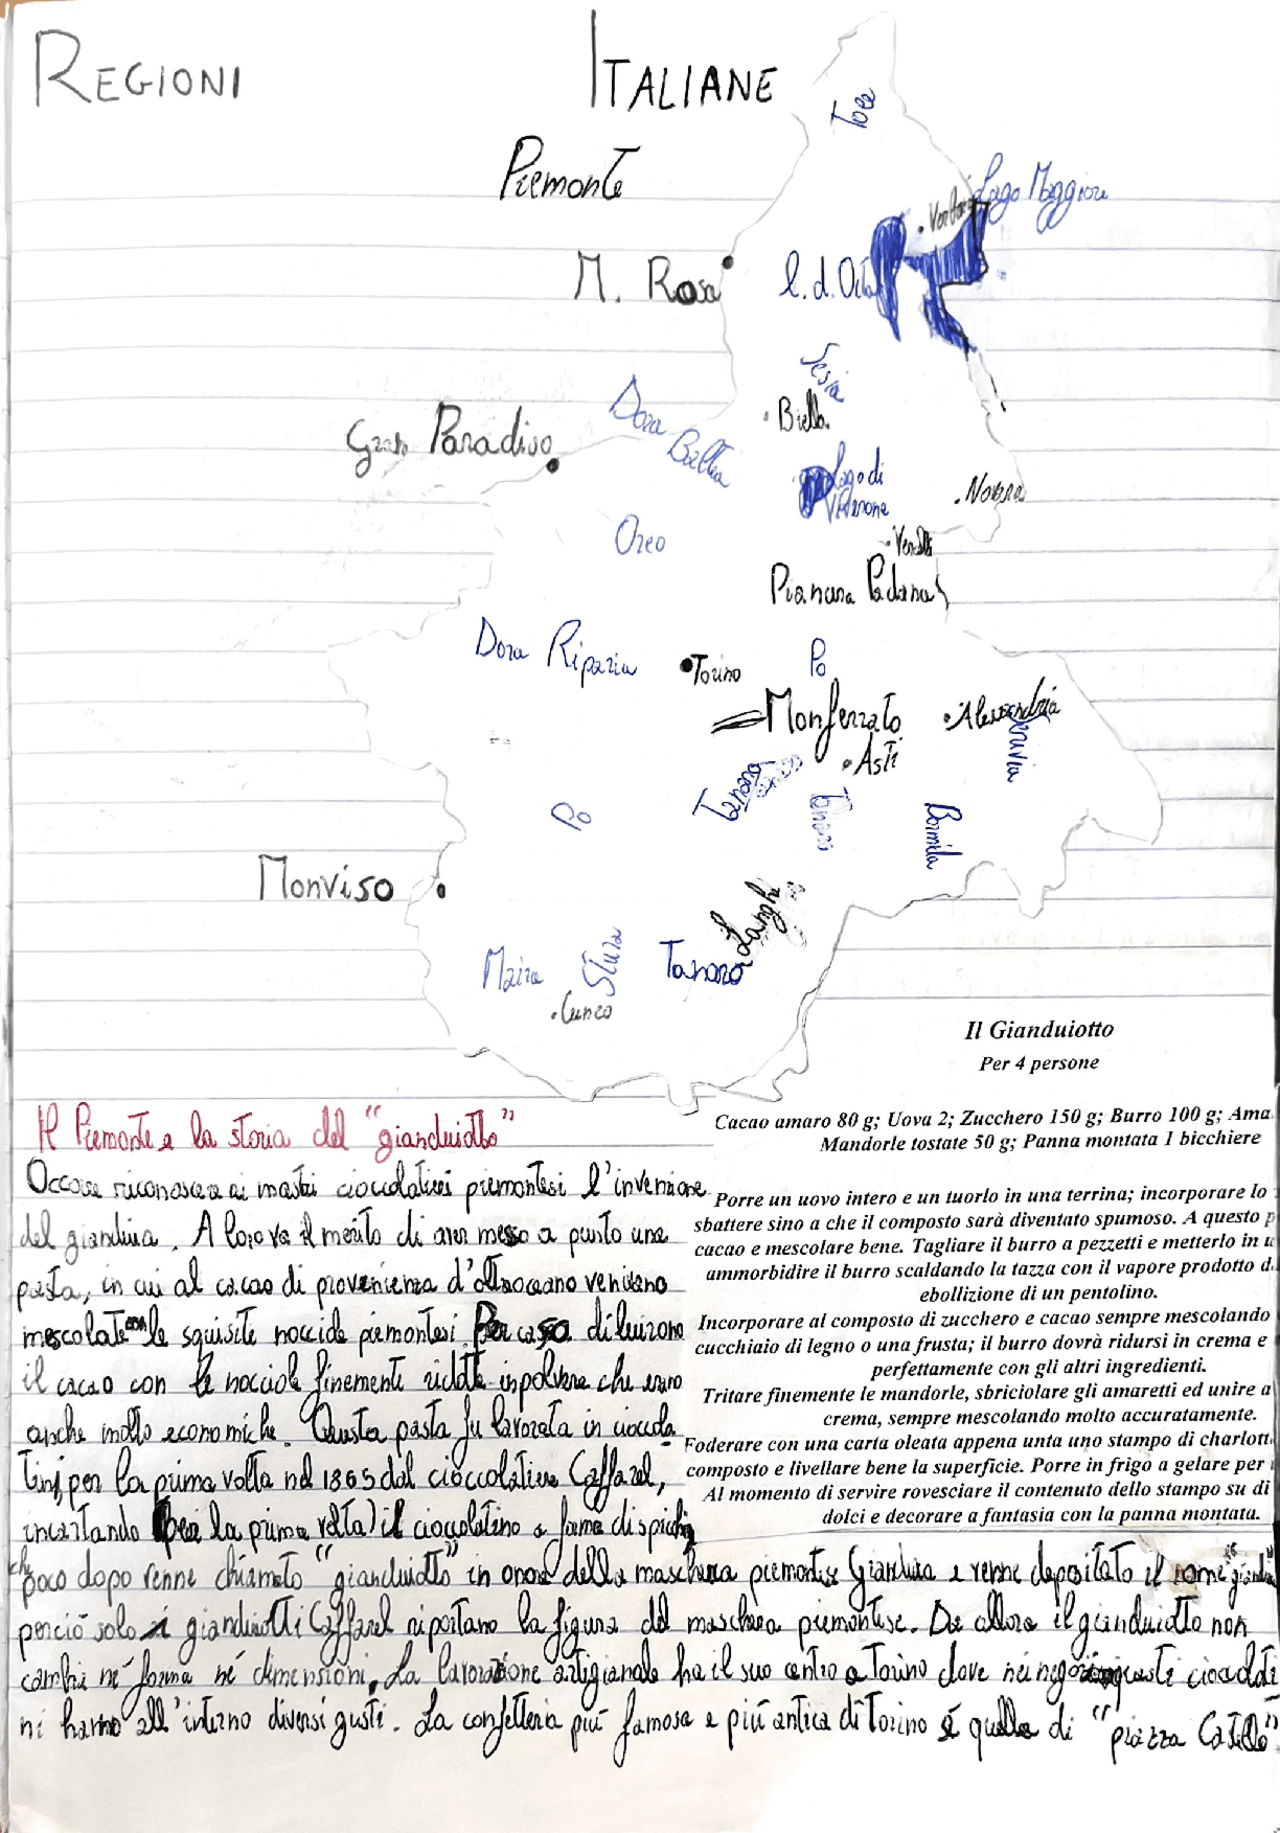 REGIONI ITALIANE
Piemonte
Toce
Lago Maggiore
M. Rosa
l. d. Orta
Sesia
Dora Baltea
Biella
Gran Paradiso
Lago di
Viverone
Novara
Orco
Vercelli
Pianura Padana
Dora Riparia
Torino
Po
Monferrato
Alessandria
Scrivia
Asti
Tanaro
Tanaro
Po
Bormida
Monviso
Langhe
Maira
Stura
Tanaro
Cuneo
Il Gianduiotto
Per 4 persone
Cacao amaro 80 g; Uova 2; Zucchero 150 g; Burro 100 g; Ama
Mandorle tostate 50 g; Panna montata 1 bicchiere
Porre un uovo intero e un tuorlo in una terrina; incorporare lo
sbattere sino a che il composto sarà diventato spumoso. A questo p
cacao e mescolare bene. Tagliare il burro a pezzetti e metterlo in
ammorbidire il burro scaldando la tazza con il vapore prodotto d
ebollizione di un pentolino.
Incorporare al composto di zucchero e cacao sempre mescolando
cucchiaio di legno o una frusta; il burro dovrà ridursi in crema e
perfettamente con gli altri ingredienti.
Tritare finemente le mandorle, sbriciolare gli amaretti ed unire a
crema, sempre mescolando molto accuratamente.
Foderare con una carta oleata appena unta uno stampo di charlott
composto e livellare bene la superficie. Porre in frigo a gelare per
Al momento di servire rovesciare il contenuto dello stampo su di
dolci e decorare a fantasia con la panna montata.
Il Piemonte e la storia del "gianduiotto"
Occorre riconoscere ai mastri cioccolatieri piemontesi l'invenzione
del gianduia. A loro va il merito di aver messo a punto una
pasta, in cui al cacao di provenienza d'oltreoceano venivano
mescolate con le squisite nocciole piemontesi Per caso diluirono
il cacao con le nocciole finemente ridotte in polvere che erano
anche molto economiche. Questa pasta fu lavorata in cioccola
tini, per la prima volta nel 1865 dal cioccolatiere Caffarel,
incartando (per la prima volta) il cioccolatino a forma di spicchio
che poco dopo venne chiamato "gianduiotto" in onore della maschera piemontese Gianduia e venne depositato il nome
perciò solo i gianduiotti Caffarel riportano la figura del maschera piemontese. Da allora il gianduiotto non
cambiò né forma né dimensioni. La lavorazione artigianale ha il suo centro a Torino dove nei negozi questi cioccolati
ni hanno all'interno diversi gusti. La confetteria più famosa e più antica di Torino è quella di "piazza Castello"